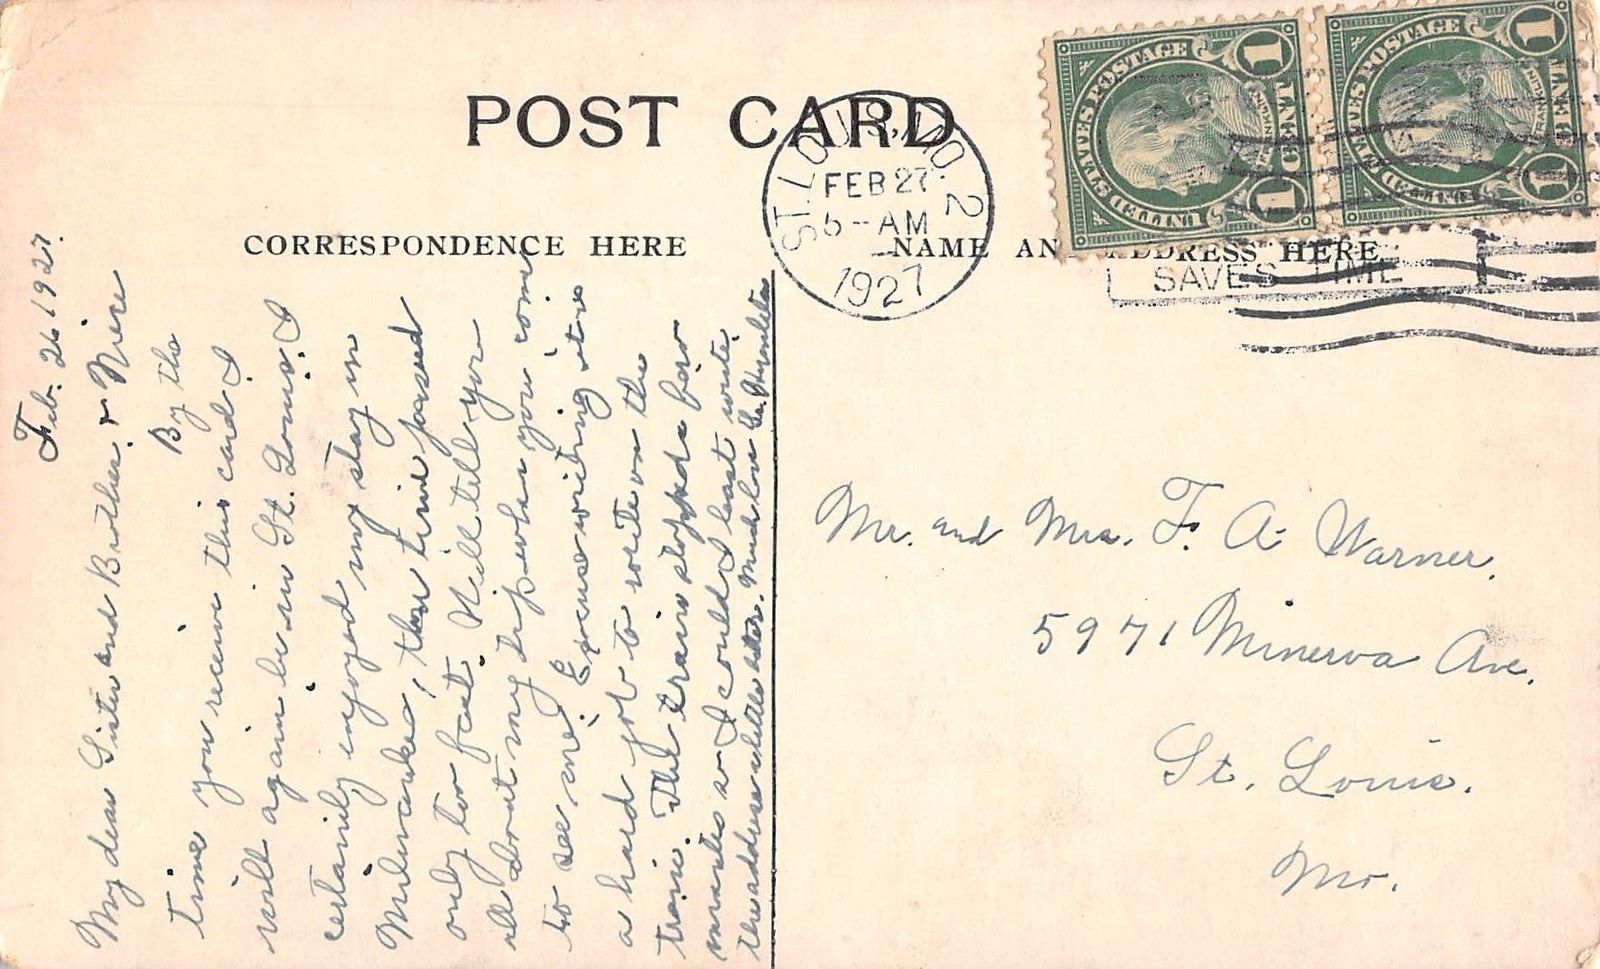 POST CARD
CORRESPONDENCE HERE
NAME AND ADDRESS HERE
UNITED STATES POSTAGE
1 CENT 1
FRANKLIN
UNITED STATES POSTAGE
1 CENT 1
FRANKLIN
ST. LOUIS, MO. 2
FEB 27
5-AM
1927
SAVES TIME
Feb. 26 1927.
My dear Sister and Brother & Niece
By the
time you receive this card I
will again be in St. Louis. I
certainly enjoyed my stay in
Milwaukee, the time passed
only too fast. Will tell you
all about my trip when you come
to see me. Excuse writing its
a hard job to write on the
train. The train stopped a few
minutes so I could at least write
the address a little better. Much love
Mr. and Mrs. F. A. Warner.
5971 Minerva Ave.
St. Louis.
Mo.